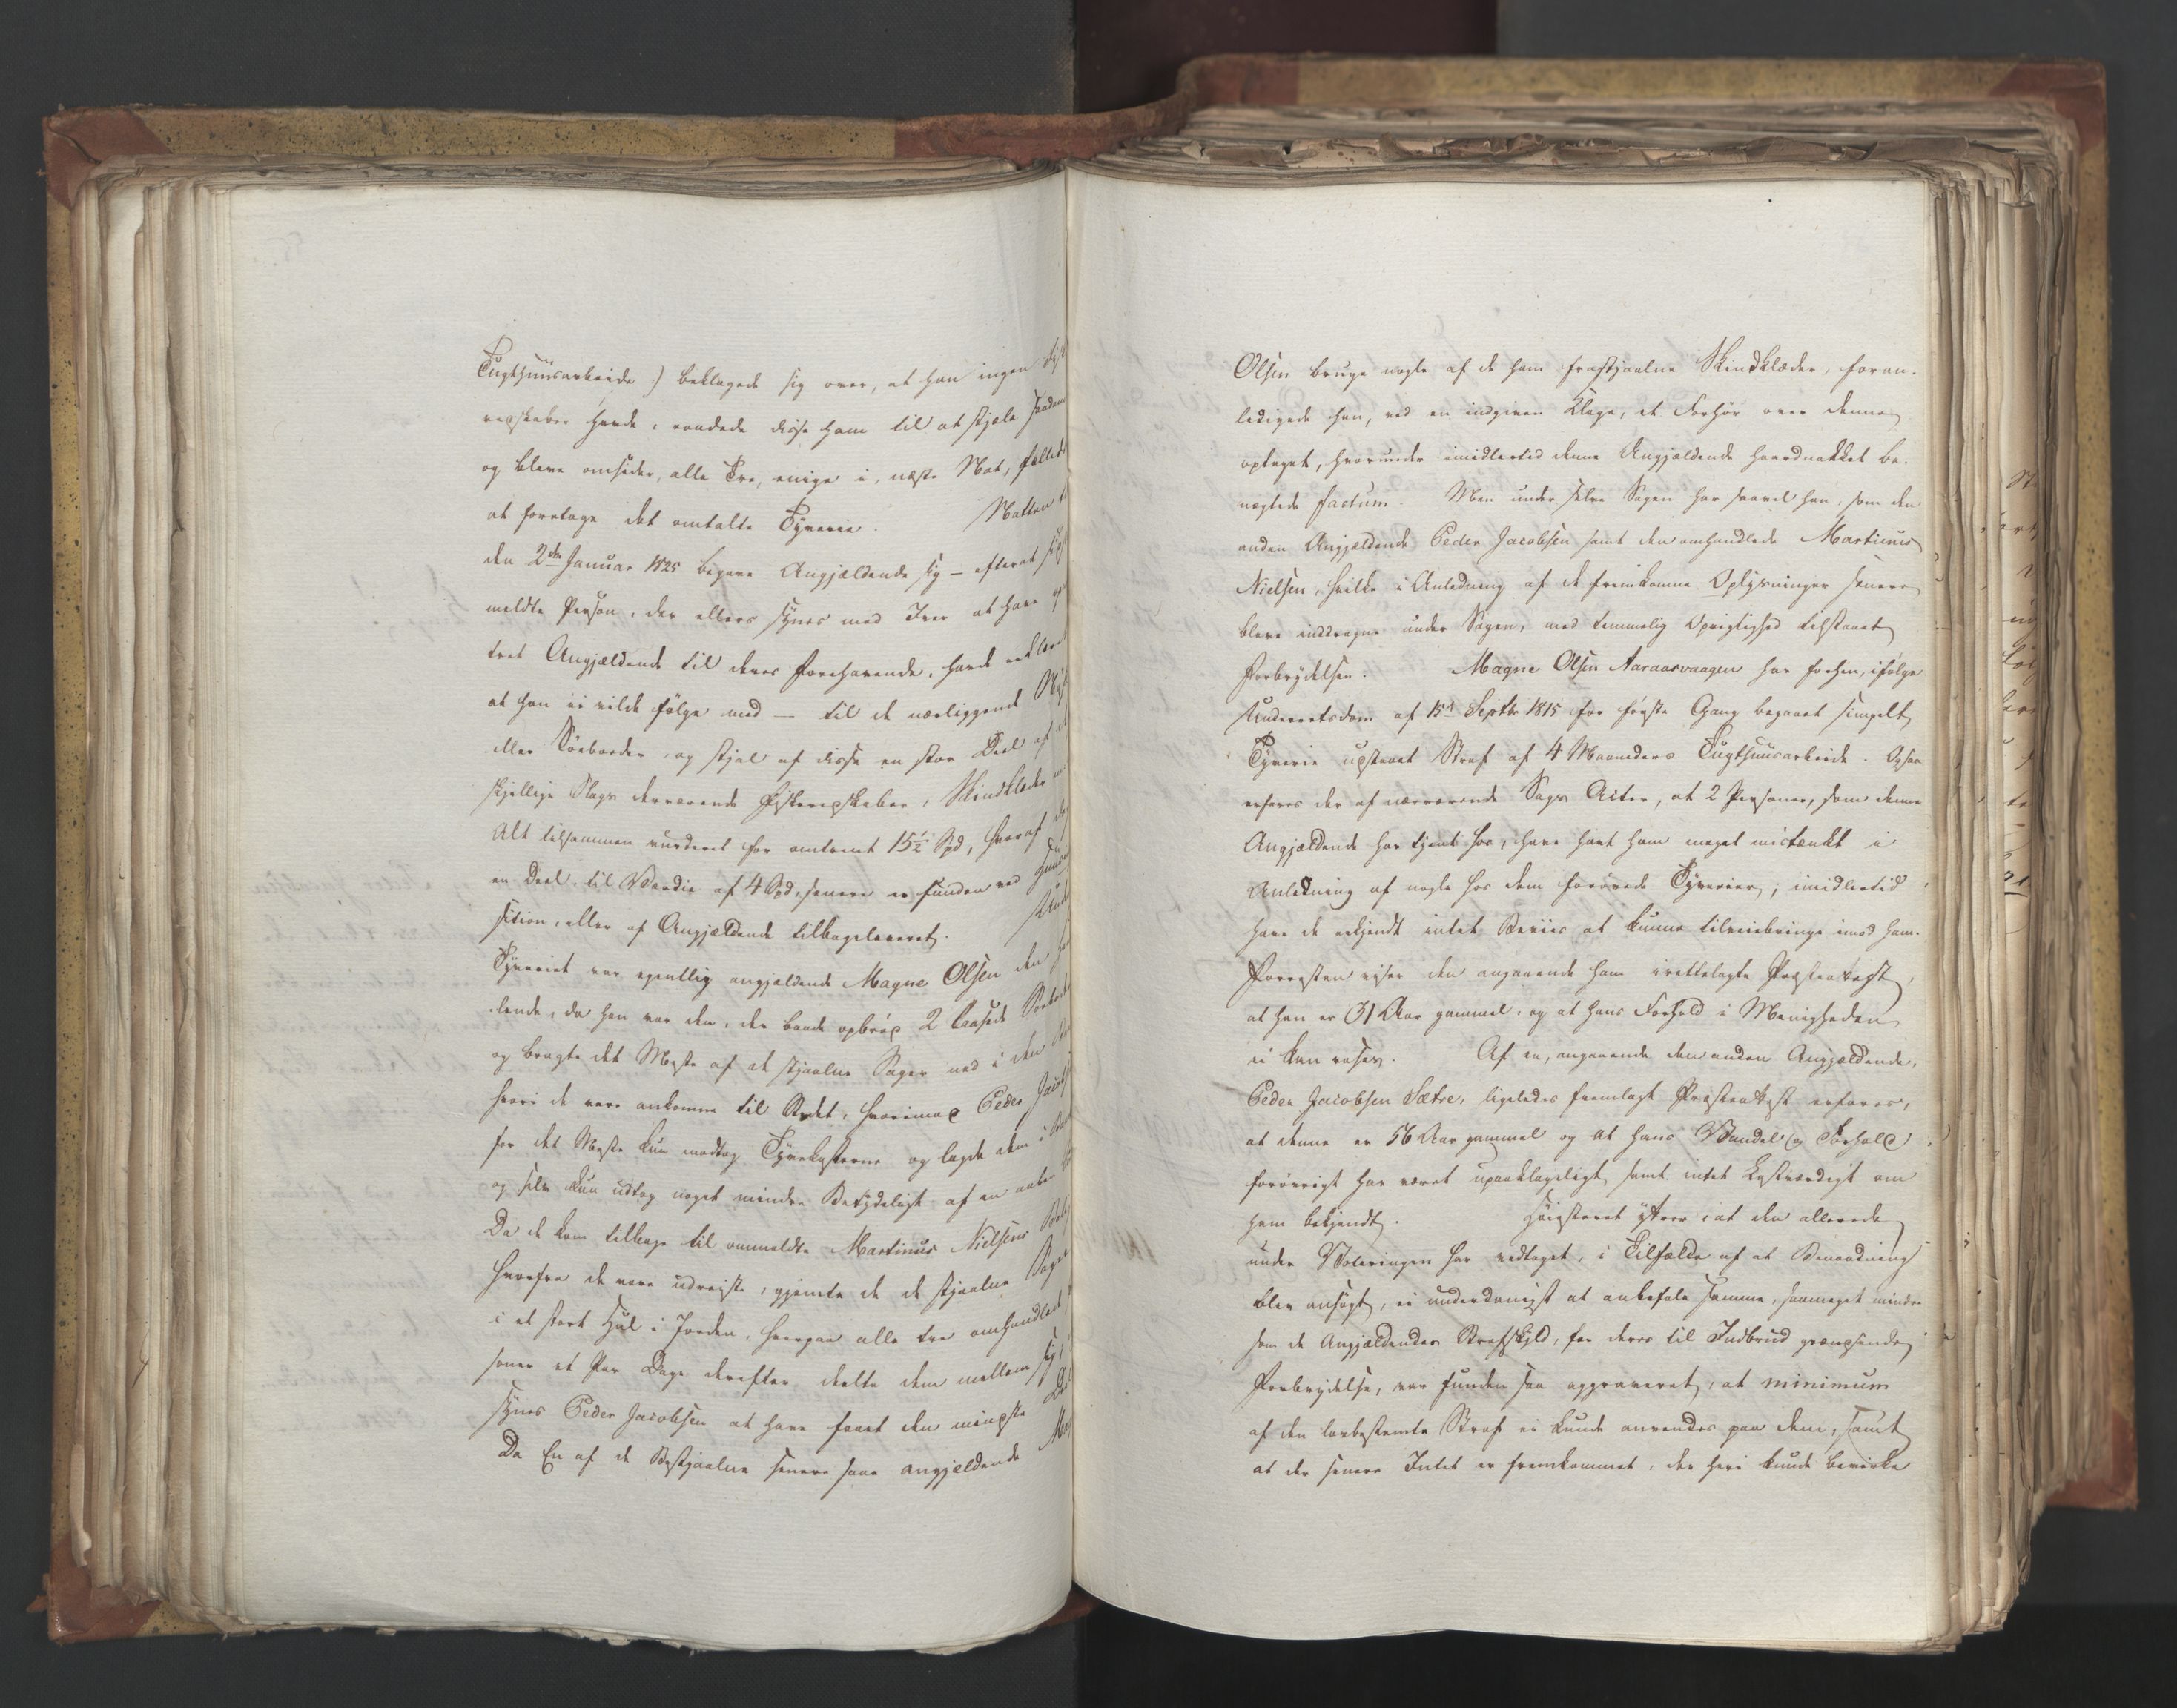 Tugthuusarbeide :/ beklagede sig over, at han ingen
redskaber havde, raadede disse ham til at stjæle saadanne
og bleve omsider, alle Tre, enige i, næste Nat, fælleds
at foretage det omtalte Tyverie. Natten
den 2den Januar 1825 begave Angjældende sig - efterat
meldte Person, der ellers synes med Iver at have
tret Angjældende til deres Forehavende, havde erklæret
at han ei vilde følge med - til de nærliggende
eller Søeboder, og stjal af disse en stor Deel af
skjellige Slags derværende Fiskeredskaber, Skindklæder
Alt tilsammen vurderet for omtrent 15½ Spd, hvoraf
en Deel, til Værdie af 4 Spd, senere er funden ved
sition, eller af Angjældende tilbageleveret. Under
Tyveriet var egentlig angjældende Magne Olsen den
lende, da han var den, der baade opbrød 2 laasede
og bragte det Meste af de stjaalne Sager ned i den
hvori de vare ankomne til Stedet, hvorimod Peder Jacobs
for det Meste kun modtog Tyvekosterne og lagde dem i
og selv kun udtog noget mindre Betydeligt af en aaben
Da de kom tilbage til ommeldte Martinus Nielsens
hvorfra de vare udreiste, gjemte de de stjaalne Sager
i et stort Hul i Jorden, hvorpaa alle tre omhandlede
soner et Par Dage derefter deelte dem mellem sig,
synes Peder Jacobsen at have faaet den mindste Deel
Da En af de Bestjaalne senere saae angjældende
Olsen bruge nogle af de ham frastjaalne Skindklæder, foran-
ledigede han, ved en indgiven Klage, et Forhør over denne
optaget, hvorunder imidlertid denne Angjældende haardnakket be-
nægtede factum. Men under selve Sagen har saavel han, som den
anden Angjældende Peder Jacobsen samt den omhandlede Martinus
Nielsen, hvilke i Anledning af de fremkomne Oplysninger senere
bleve inddragne under Sagen, med temmelig Oprigtighed tilstaaet
Forbrydelsen. Magne Olsen Aaraasvaagen har forhen, ifølge
Underretsdom af 15d Septbr 1815 for første Gang begaaet simpelt
Tyverie udstaaet Straf af 4 Maaneders Tugthuusarbeide. Ogsaa
erfares der af nærværende Sags Acter, at 2 Personer, som denne
Angjældende har tjent hos, have havt ham meget mistænkt i
Anledning af nogle hos dem forøvede Tyverier; imidlertid
have de erkjendt intet Beviis at kunne tilveiebringe imod ham.
Forresten viser den angaaende ham irettelagte Præsteattest,
at han er 31 Aar gammel, og at hans Forhold i Menigheden
ei kan roses. Af en, angaaende den anden Angjældende,
Peder Jacobsen Sætre, ligeledes fremlagt Præsteattest erfares,
at denne er 56 Aar gammel og at hans Vandel og Forhold
forøvrigt har været upaaklageligt, samt intet Lastværdigt om
ham bekjendt. Høiesteret yttrer: at den allerede
under Voteringen har vedtaget, i Tilfælde af at Benaadning
blev ansøgt, ei underdanigst at anbefale samme, saameget mindre
som de Angjældendes Strafskyld, for deres til Indbrud grændsende
Forbrydelse, var funden saa aggraveret, at minimum
af den lovbestemte Straf ei kunde anvendes paa dem, samt
at der senere Intet er fremkommet, der heri kunde bevirke